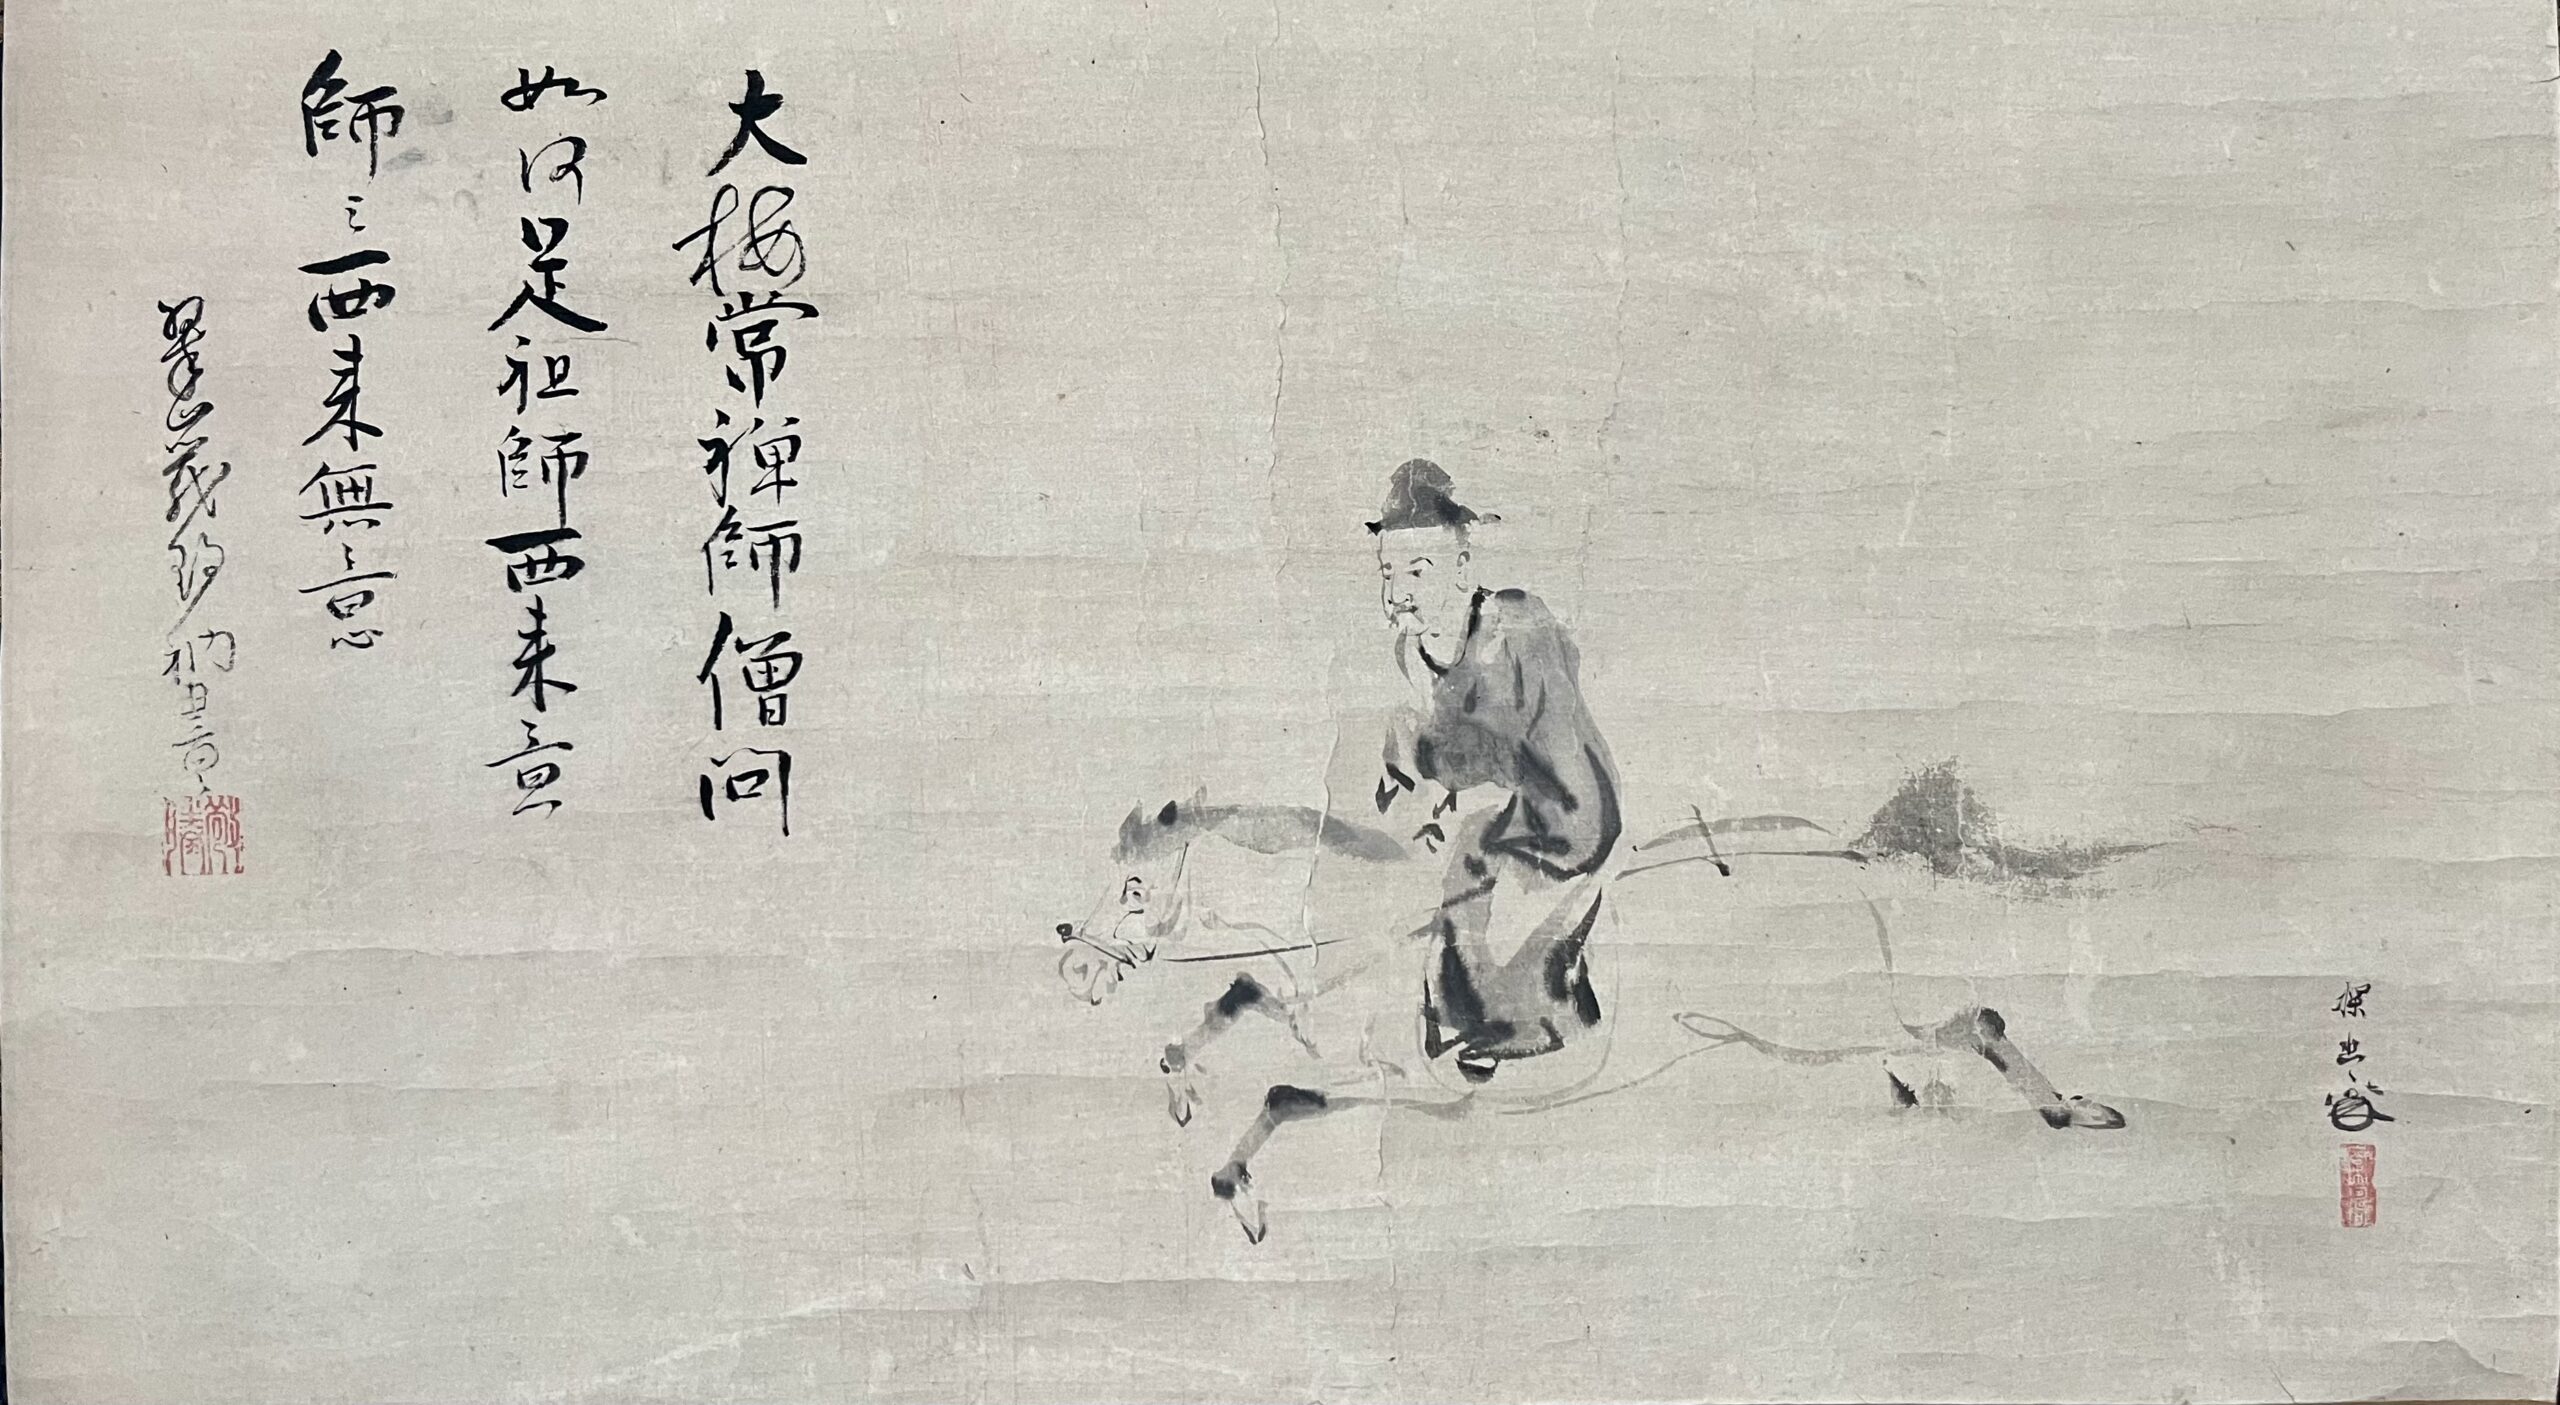 大梅常禅師僧問
如何是祖師西来意
師云西来無意
翠巌野衲書
探幽筆